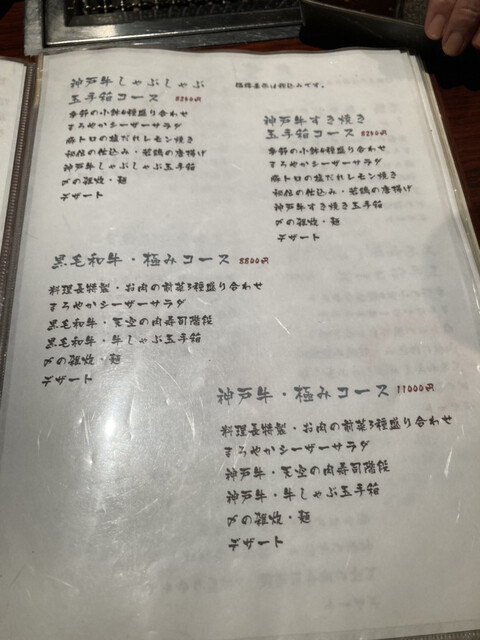 神戸牛しゃぶしゃぶ
玉手箱コース 8240円
季節の小鉢4種盛り合わせ
まろやかシーザーサラダ
豚トロの塩だれレモン焼き
秘伝の仕込み・若鶏の唐揚げ
神戸牛しゃぶしゃぶ玉手箱
〆の雑炊・麺
デザート
価格表示は税込みです。
神戸牛すき焼き
玉手箱コース 8240円
季節の小鉢4種盛り合わせ
まろやかシーザーサラダ
豚トロの塩だれレモン焼き
秘伝の仕込み・若鶏の唐揚げ
神戸牛すき焼き玉手箱
〆の雑炊・麺
デザート
黒毛和牛・極みコース 8800円
料理長特製・お肉の前菜3種盛り合わせ
まろやかシーザーサラダ
黒毛和牛・天空の肉寿司階段
黒毛和牛・牛しゃぶ玉手箱
〆の雑炊・麺
デザート
神戸牛・極みコース 11000円
料理長特製・お肉の前菜3種盛り合わせ
まろやかシーザーサラダ
神戸牛・天空の肉寿司階段
神戸牛・牛しゃぶ玉手箱
〆の雑炊・麺
デザート